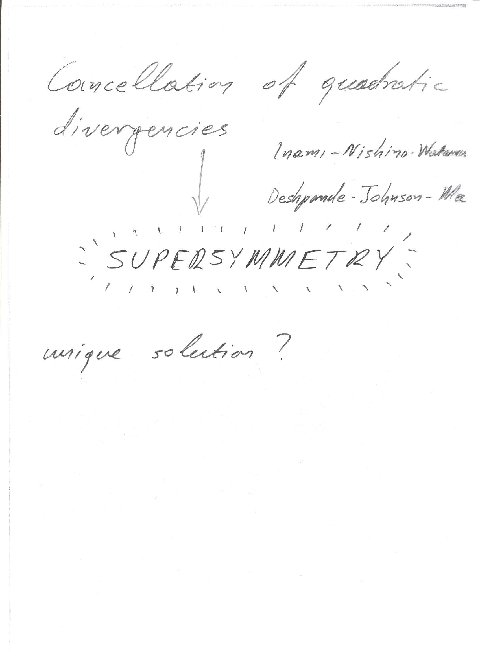 Cancellation of quadratic
divergencies
Inami-Nishino-Watamura
Deshpande-Johnson-Ma
SUPERSYMMETRY
unique solution?